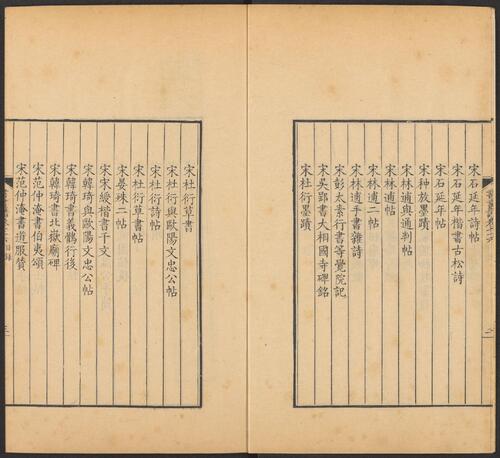 宋石延年詩帖
宋石延年楷書古松詩
宋石延年帖
宋种放墨蹟
宋林逋與通判帖
宋林逋帖
宋林逋二帖
宋林逋手書雜詩
宋彭太素行書等覺院記
宋吳郢書大相國寺碑銘
宋杜衍墨蹟
宋杜衍草書
宋杜衍與歐陽文忠公帖
宋杜衍詩帖
宋杜衍草書帖
宋晏殊二帖
宋宋綬楷書千文
宋韓琦與歐陽文忠公帖
宋韓琦書義鶻行後
宋韓琦書北嶽廟碑
宋范仲淹書伯夷頌
宋范仲淹書道服贊